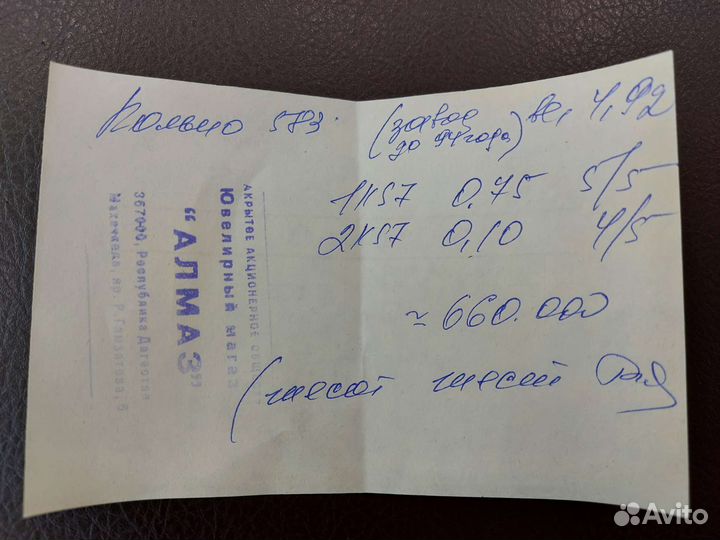 Кольцо 573. (завод до 94 года) вес 4,92
1К57 0,75 5/5
2К57 0,10 4/5
≈ 660.000
(шесот шесть
ЗАКРЫТОЕ АКЦИОНЕРНОЕ ОБЩ
Ювелирный магаз
"АЛМАЗ"
367000, Республика Дагестан
Махачкала, пр. Р. Гамзатова, 6
Avito